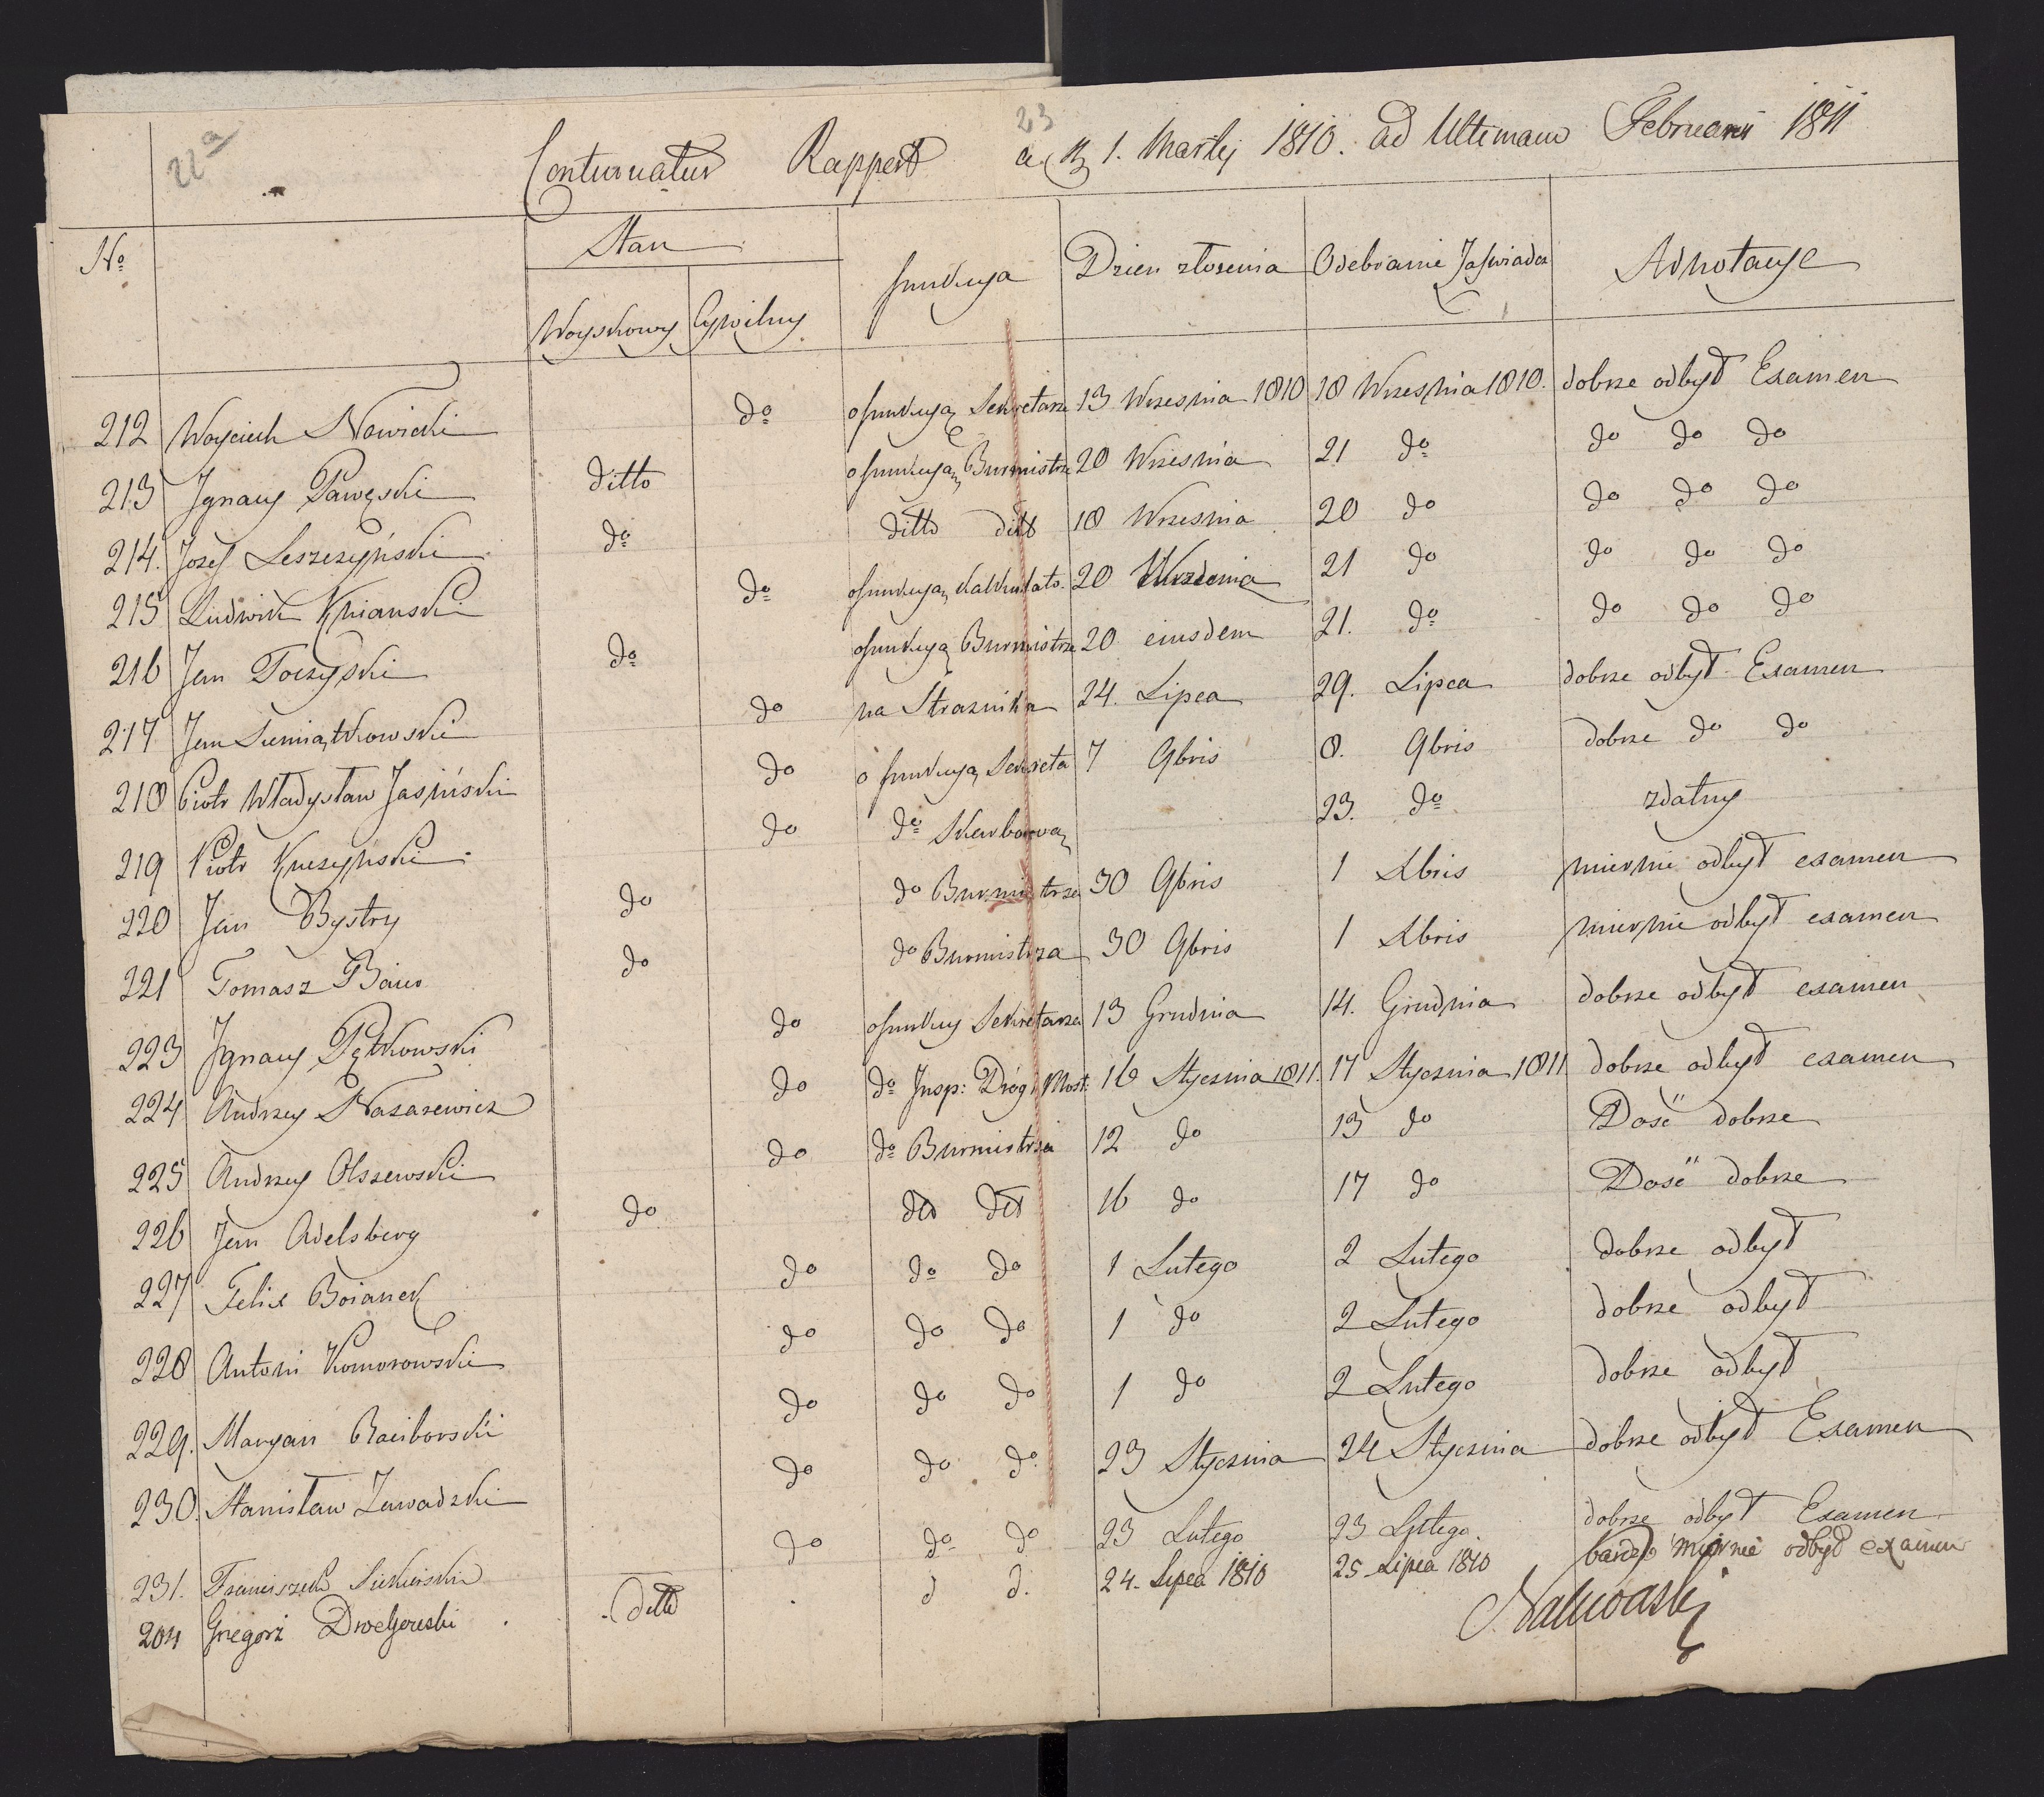 22a
23
Continuatur Rapport a 1. Martij 1810. ad Ultimam Februarii 1811
No Stan funkcya Dzien złozenia Odebranie Zaswiadcz Adnotacye
Woyskowy Cywilny
212 Woyciech Nowicki do o funkcyą Sekretarza 13 Wrzesnia 1810 18 Wrzesnia 1810. dobrze odbył Examen
213 Jgnacy Pawęski ditto o funkcyą Burmistrza 20 Wrzesnia 21 do do do do
214. Jozef Leszczyński do ditto ditto 18 Wrzesnia 20 do do do do
215 Ludwik Kniauski do o funkcyą Kalkulato. 20 Wrzesnia 21 do do do do
216 Jan Toczyski do o funkcyą Burmistrza 20 eiusdem 21. do do do do
217 Jan Siemiątkowski do na Straznika 24. Lipca 29. Lipca dobrze odbył Examen
218 Piotr Władysław Jasiński do o funkcyą Sekreta 7 9bris 8. 9bris dobrze do do
219 Piotr Kuczyński do do Skarbową 23. do zdatny
220 Jan Bystry do do Burmistrza 30 9bris 1 Xbris miernie odbył examen
221 Tomasz do do Burmistrza 30 9bris 1 Xbris miernie odbył examen
223 Jgnacy Pętkowski do o funkcy Sekretarza 13 Grudnia 14. Grudnia dobrze odbył examen
224 Andrzey Nazarewicz do do Jnsp: Dróg i Most: 16 Stycznia 1811. 17 Stycznia 1811 dobrze odbył examen
225 Andrzey Olszewski do do Burmistrza 12 do 13 do Dosć dobrze
226 Jan Adelsberg do dto dto 16 do 17 do Dosć dobrze
227 Felix Boianek do do do 1 Lutego 2 Lutego dobrze odbył
228 Antoni Komorowski do do do 1 do 2 Lutego dobrze odbył
229. Maryan Raciborski do do do 1 do 2 Lutego dobrze odbył
230. Stanisław Zawadzki do do do 23 Stycznia 24 Stycznia dobrze odbył Examen
231. Franciszek do do do 23 Lutego 23 Lutego. dobrze odbył Examen
204 Gregorz ditto d d. 24. Lipca 1810 25 Lipca 1810 bardzo miernie odbył examen
Nakwaski